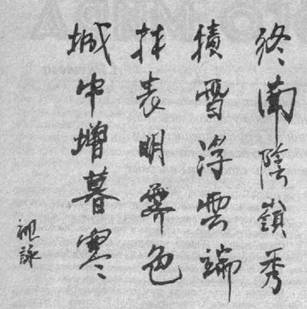 終南陰嶺秀
積雪浮雲端
林表明霽色
城中增暮寒
祖詠